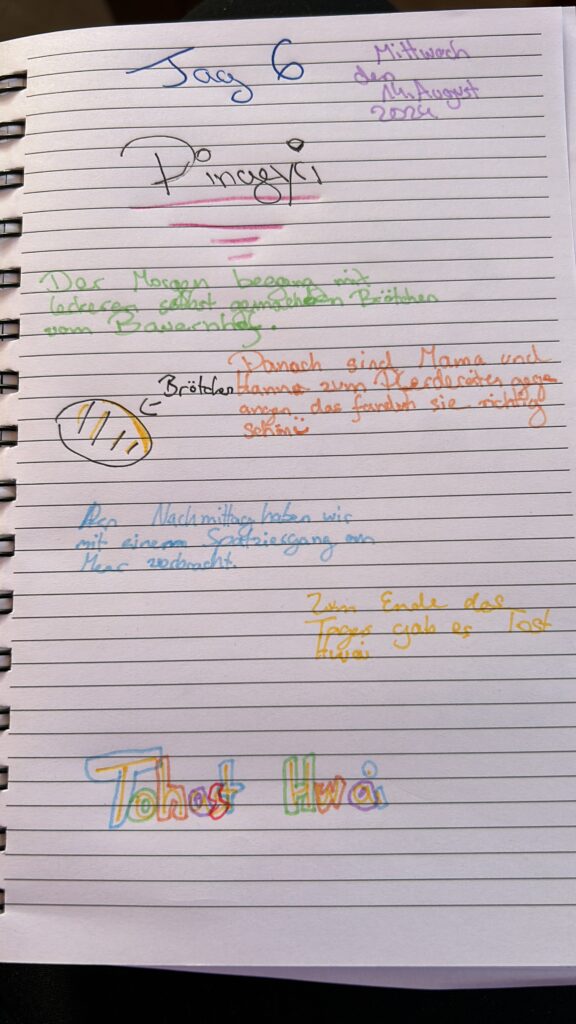 Tag 6
Mittwoch
den
14. August
2024
Der Morgen begann mit
leckeren selbst gemachten Brötchen
vom Bauernhof.
Danach sind Mama und
Hanna zum
angen das fanden sie richtig
schön
Brötchen
Den Nachmittag haben wir
mit einem Spatziergang am
Meer verbracht.
Zum Ende des
Tages gab es Tost
Hwai
Tohast Hwai